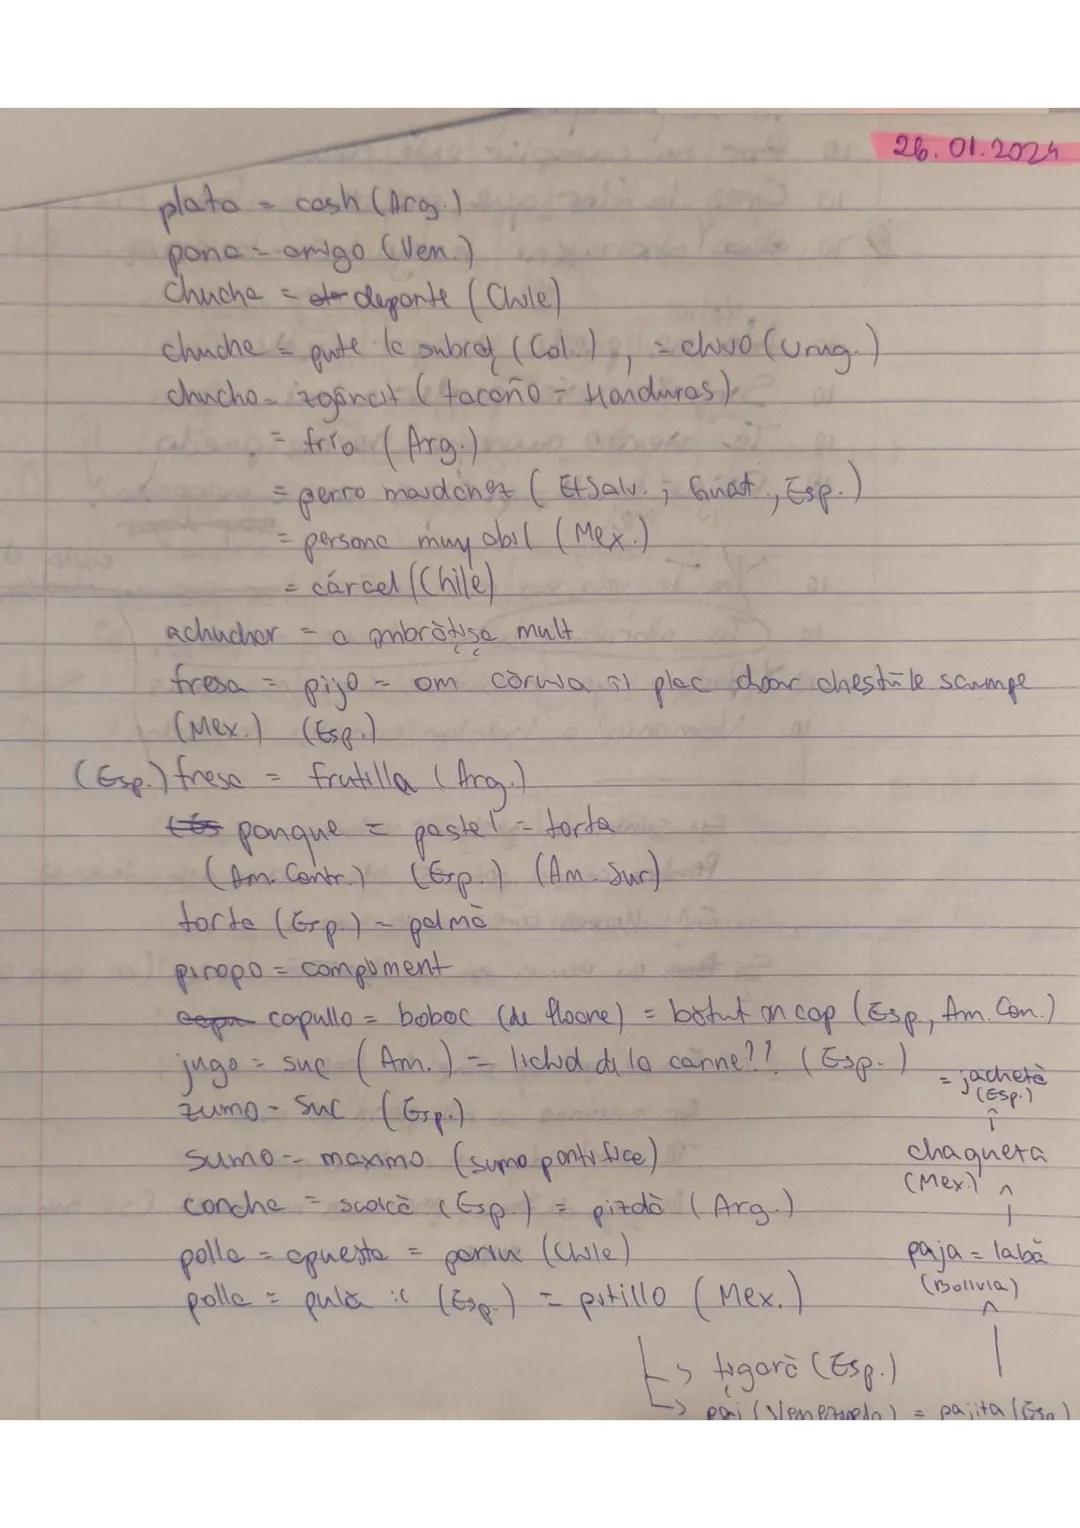 26.01.2024
plata = cash (Arg.)
pana = amigo (Ven.)
Chucha = departe (Chile)
chucha = pute la subraț (Col.), = chivo (Urug.)
chucho = zgârcit (tacaño - Honduras)
= frío (Arg.)
= perro maidanez (El Salv., Guat., Esp.)
= persona muy abil (Mex.)
= cárcel (Chile)
achuchar = a îmbrățișa mult
fresa = pijo = om căruia îi plac doar chestiile scumpe
(Mex.) (Esp.)
(Esp.) fresa = frutilla (Arg.)
ponque = pastel = torta
(Am. Centr.) (Esp.) (Am. Sur)
torta (Esp.) = palmă
piropo = compliment
capullo = boboc (de floare) = bătut în cap (Esp., Am. Cen.)
jugo = suc (Am.) = lichid de la carne?? (Esp.)
= jachetă
(Esp.)
zumo = suc (Esp.)
sumo = maximo (sumo pontifice)
chaqueta
(Mex.)
concha = scoică (Esp.) = pizdă (Arg.)
polla = apuesta = pariu (Chile)
paja = labă
(Bolivia)
polla = pulă :( (Esp.) = pitillo (Mex.)
țigară (Esp.)
pai (Venezuela) = pajita (Esp.)